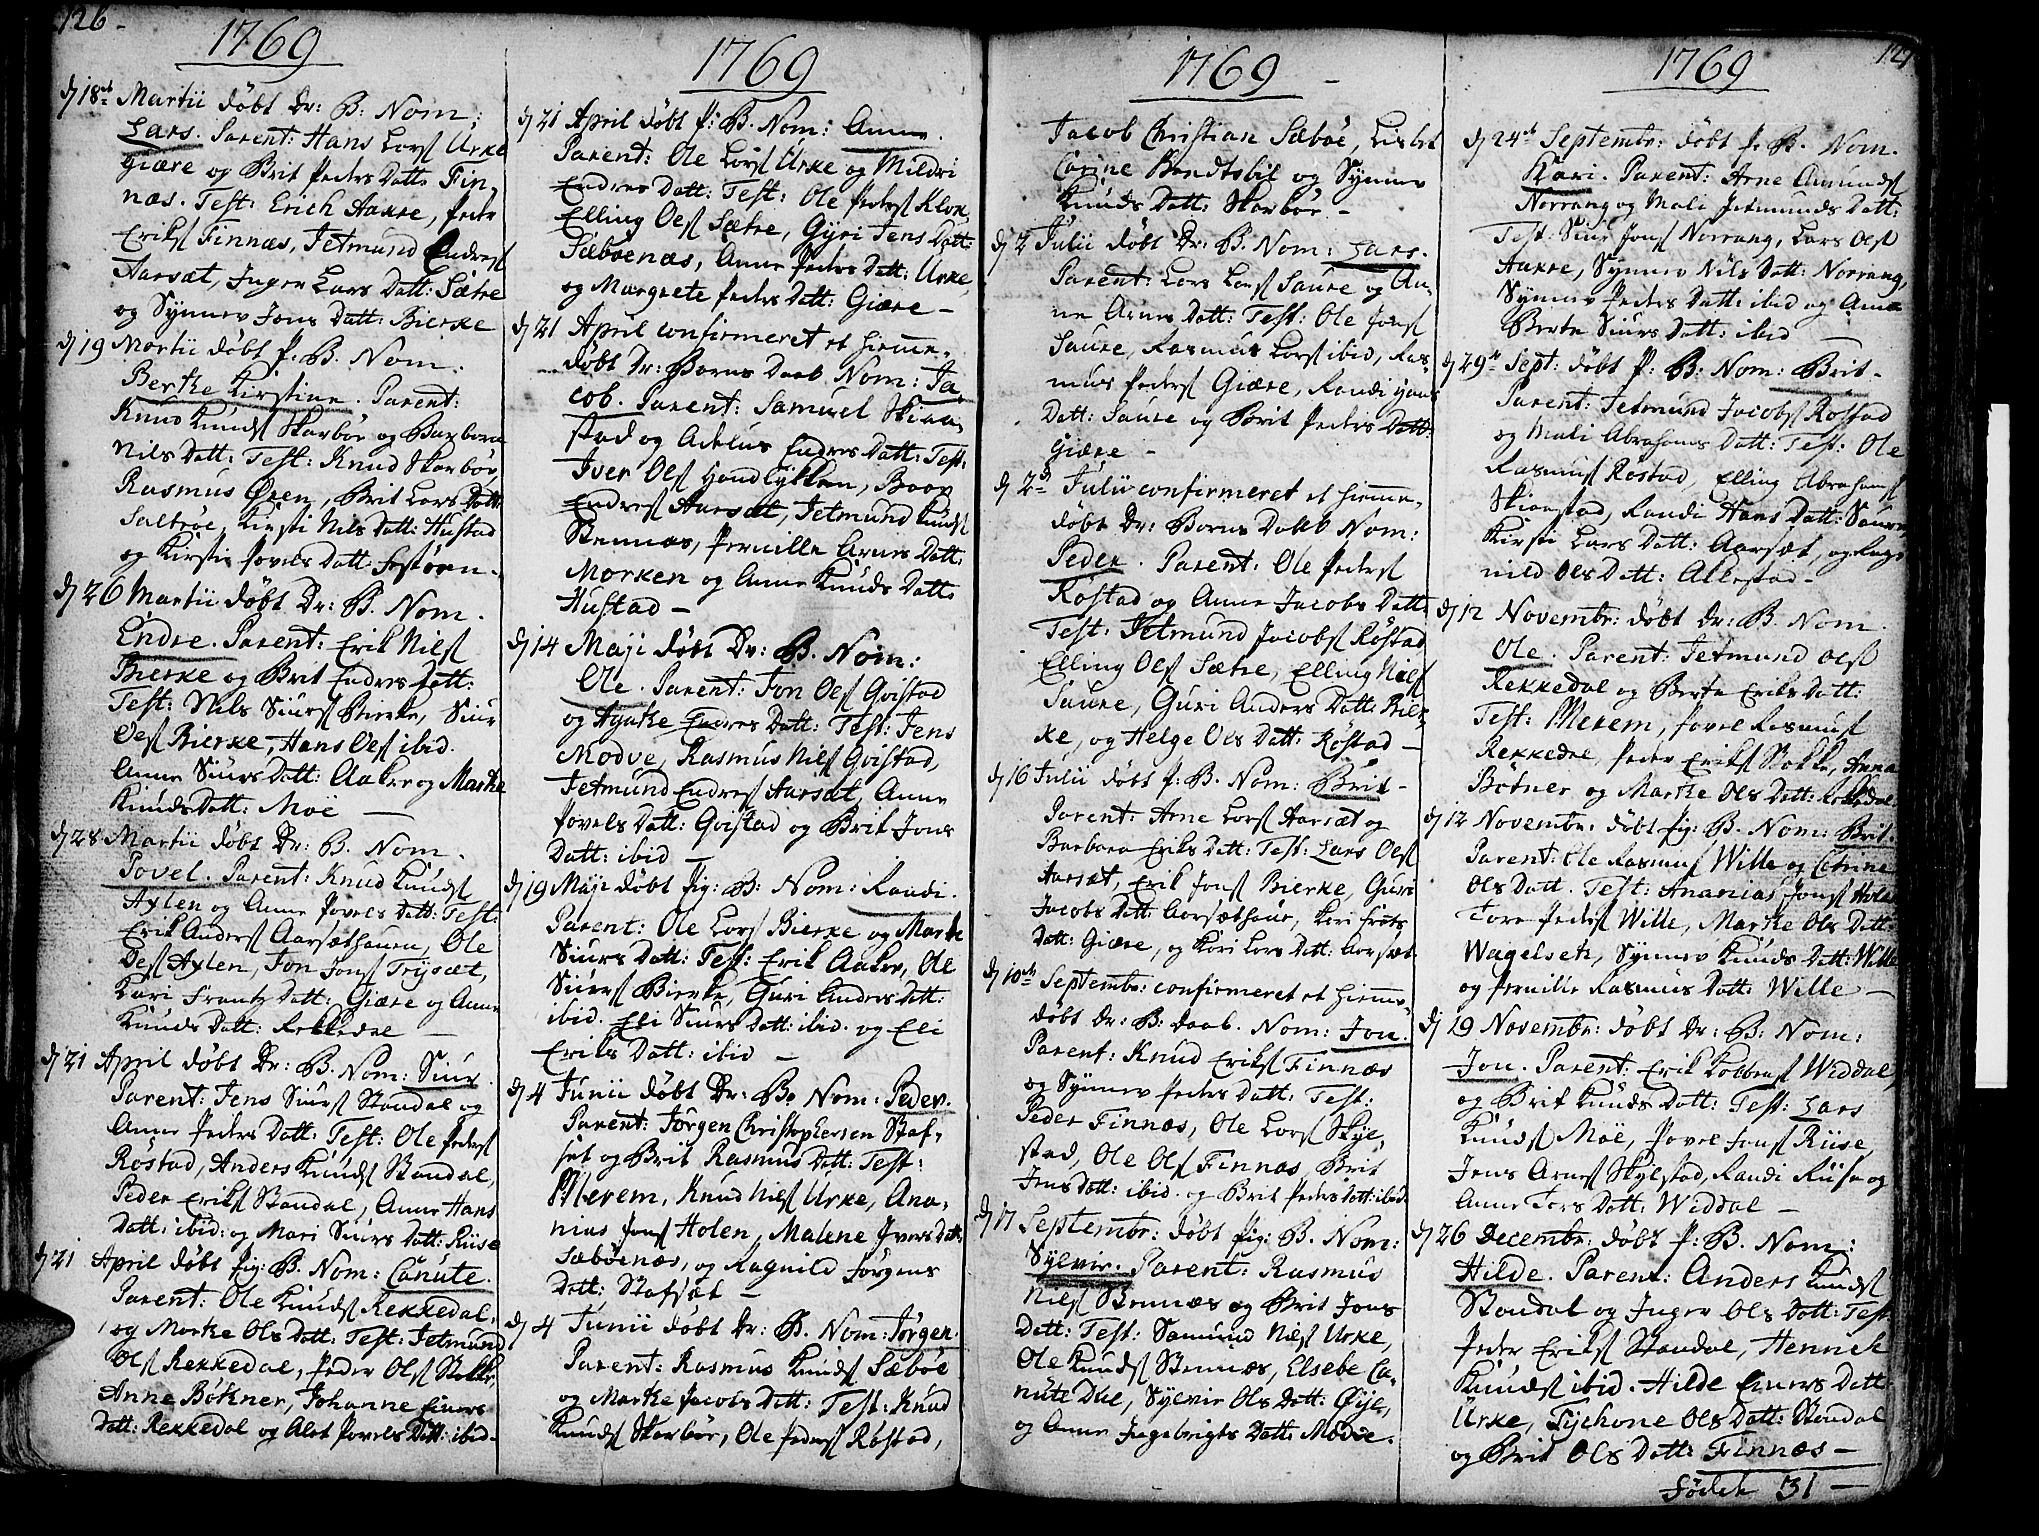 126
1769
dj 18de Martii døbt Dr: B. Nom:
Lars. Parent: Hans Lars Urke
giære og Brit Peders Datt: Fin,
næs. Test: Erich Aakre, Peder
Eriks Finnæs, Jetmund Endres
Aarsæt, Inger Lars Datt: Sætre
og Synnev Jons Datt: Bierke
dj 19 Martii døbt P: B. Nom.
Berthe Kirstine. Parent:
Knud Knuds Skarbøe og Barbora
Nils Datt: Test: Knud Skarbøe,
Rasmus Øren, Brit Lars Datt:
Saltrøe, Kirsti Nils Datt: Hustad
og Kirstie Povels Datt:
dj 26 Martii døbt Dr: B. Nom.
Endre. Parent: Erik Niels
Bierke og Brit Endres Datt:
Test: Nils Siurs Bierke, Siur
Oels Bierke, Hans Oels ibid.
Anne Siurs Datt: Aaker og Marthe
Knuds Datt: Moe —
dj 28 Martii døbt Dr: B. Nom.
Povel. Parent: Knud Knuds
Axlen og Anne Povels Datt: Test:
Erik Anders Aarsæthauen, Ole
Oels Axlen, Jon Jons Trysæt,
Kari Frantz Datt: Giære og Anne
Knuds Datt: Rekkedae —
dj 21 April døbt Dr: B. Nom: Siur.
Parent: Jens Siurs Standal og
Anne Peders Datt: Test: Ole Peders
Røstad, Anders Knuds Standal,
Peder Eriks Standal, Anne Hans
Datt: ibid: og Mari Siurs Datt: Riise
dj 21 April døbt Pig: B. Nom: Canute.
Parent: Ole Knuds Rekkedal,
og Marthe Ols Datt: Test: Jetmund
Ols Rekkedal, Peder Ols Stokke,
Anne Bøtner, Johanne Einers
Datt: Rekkedal og Alet Povels Datt: ibid.
1769
dj 21 April døbt P: B. Nom: Anne.
Parent: Ole Lars Urke og Mildri
Endres Datt: Test: Ole Peders Klok,
Elling Oels Sætre, Gyri Jens Datt:
Sæbøenæs, Anne Peders Datt: Urke,
og Margrete Peders Datt: Giære —
dj 21 April confirmeret et hieme,
døbt Dr: Borns Daab Nom: Ja,
cob. Parent: Samuel Skiaa,
stad og Aehlus Endres Datt: Test:
Iver Ols Hondlykken, Baar
Endres Aarsæt, Jetmund Knuds
Stennæs, Pernille Arnes Datt:
Morken og Anne Knuds Datt:
Hustad —
dj 14 Maji døbt Dr: B. Nom:
Ole. Parent: Jon Ols Qvistad
og Agathe Endres Datt: Test: Jens
Modve, Rasmus Niels Qvistad,
Jetmund Endres Aarsæt, Anne
Povels Datt: Qvistad og Brit Jons
Datt: ibid —
dj 19 Maji døbt Pig: B: Nom: Randi.
Parent: Ole Lars Bierke og Marthe
Siurs Datt: Test: Erik Aaker, Ole
Siurs Bierke, Guri Anders Datt:
ibid. Eli Siurs Datt: ibid. og Eli
Eriks Datt: ibid —
dj 4 Junii døbt Dr: B. Nom: Peder.
Parent: Jørgen Christophersen Staf,
set og Brit Rasmus Datt: Test:
Mserem, Knud Niels Urke, Ana,
nias Jons Holen, Malene Ivers Datt:
Sæbøenæs, og Ragnild Jørgens
Datt: Stafsæt —
dj 4 Junii døbt Dr: B. Nom: Jørgen.
Parent: Rasmus Knuds Sæbøe
og Marthe Jacobs Datt: Test: Knud
Knuds Skarbøe, Ole Peders Røstad,
1769
Jacob Christian Sæbøe, Lisbet
Carine Bendtsbil og Synnev
Knuds Datt: Skarbøe. —
dj 2 Julii døbt Dr: B. Nom: Lars.
Parent: Lars Lars Saure og An,
ne Arnes Datt: Test: Ole Jons
Saure, Rasmus Lars ibid, Ras,
mus Peders Giære, Randi Hans
Datt: Saure og Brit Peders Datt:
Giære —
dj 2de Julii confirmeret et hieme,
døbt Dr: Borns Daab Nom:
Peder. Parent: Ole Peders
Røstad og Anne Jacobs Datt:
Test: Jetmund Jacobs Røstad
Elling Ols Sætre, Elling Niels
Saure, Guri Anders Datt: Bier,
ke, og Helge Ols Datt: Røstad —
dj 16 Julii døbt P: B. Nom: Brit —
Parent: Arne Lars Aarsæt og
Barbara Eriks Datt: Test: Lars Ols
Aarsæt, Erik Jons Bierke, Guri
Jacobs Datt: Aarsæthaue, Kari Frants
Datt: Giære, og Kari Lars Datt: Aarsæt
dj 10de Septembr: confirmeret et hieme,
døbt Dr: B: Daab. Nom: Jon.
Parent: Knud Eriks Finnæs
og Synnev Peders Datt: Test:
Peder Finnæs, Ole Lars Skye,
stad, Ole Ols Finnæs, Brit
Jens Datt: ibid. og Brit Peders Datt: ibid
dj 17 Septembr: døbt Pig: B. Nom:
Sylvir. Parent: Rasmus
Niels Stennæs og Brit Jons
Datt: Test: Samund Niels Urke,
Ole Knuds Stennæs, Elsebe Ca,
nute Due, Sylvir Ols Datt: Øye,
og Anne Ingebrigts Datt: Modve.
127
1769
dj 24de Septembr: døbt P: B. Nom.
Kari. Parent: Arne Amunds
Norrang og Mali Jetmunds Datt:
Test: Siur Jons Norrang, Lars Ols
Aakre, Synnev Nils Datt: Norrang,
Synnev Peders Datt: ibid og Anne
Berte Siurs Datt: ibid —
dj 29de Sept: døbt P: B: Nom: Brit —
Parent: Jetmund Jacobs Røstad
og Mali Abrahams Datt: Test: Ole
Rasmus Røstad, Elling Abrahams
Skiaastad, Randi Hans Datt: Saure,
Kirsti Lars Datt: Aarsæt, og Rag,
nild Ols Datt: Allestad —
dj 12 Novembr: døbt Dr: B. Nom.
Ole. Parent: Jetmund Ols
Rekkedal og Berte Eriks Datt:
Test: Mserem, Povel Rasmus
Rekkedal, Peder Eriks Stokke, Anna
Bøtner og Marthe Ols Datt: Rekkedal
dj 12 Novembr: døbt Pig: B. Nom: Brit.
Parent: Ole Rasmus Wille og Cathrine
Ols Datt. Test: Ananias Jons Holen
Tore Peders Wille, Marthe Ols Datt:
Wagelseth, Synnev Knuds Datt: Wille
og Pernille Rasmus Datt: Wille —
dj 19 Novembr: døbt Dr: B: Nom:
Jon. Parent: Erik Kolbens Widdal,
og Brit Knuds Datt: Test: Lars
Knuds Moe, Povel Jons Riise,
Jens Arnes Skylstad, Randi Riise og
Anne Tors Datt: Widdal —
dj 26 Decembr: døbt P: B. Nom:
Hilde. Parent: Anders Knuds
Standal og Inger Ols Datt: Test:
Peder Eriks Standal, Henrich
Knuds ibid. Hilde Einers Datt:
Urke, Tyehone Ols Datt: Standal
og Brit Ols Datt: Finnæs —
Fødde 31 —